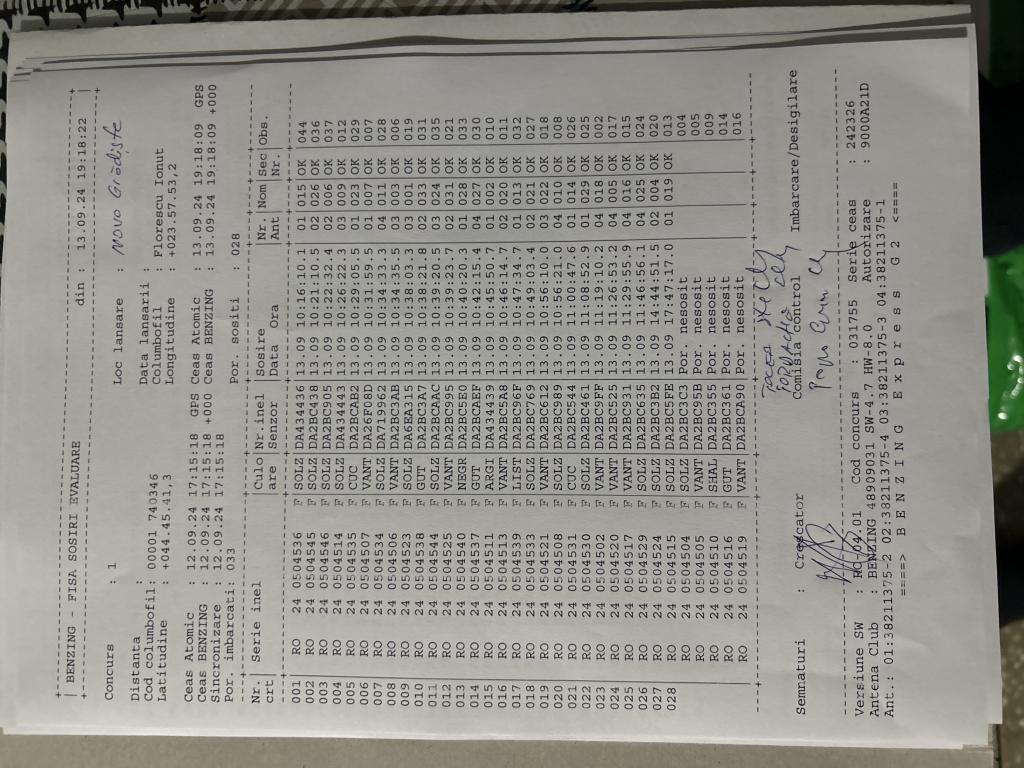 BENZING - FISA SOSIRI EVALUARE din : 13.09.24 19:18:22
Concurs : 1 Loc lansare : Movo Grădişte
Distanta : Data lansarii :
Cod columbofil: 00001 740346 Columbofil : Florescu Ionut
Latitudine : +044.45.41,3 Longitudine : +023.57.53,2
Ceas Atomic : 12.09.24 17:15:18 GPS Ceas Atomic : 13.09.24 19:18:09 GPS
Ceas BENZING : 12.09.24 17:15:18 +000 Ceas BENZING : 13.09.24 19:18:09 +000
Sincronizare : 12.09.24 17:15:18
Por. imbarcati: 033 Por. sositi : 028
Nr. Serie inel Culo Nr.inel Sosire Nr. Nom Sec Obs.
crt are Senzor Data Ora Ant Nr.
001 RO 24 0504536 F SOLZ DA434436 13.09 10:16:10.1 01 015 OK 044
002 RO 24 0504545 F SOLZ DA2BC438 13.09 10:21:10.5 02 026 OK 036
003 RO 24 0504546 F SOLZ DA2BC905 13.09 10:22:32.4 02 006 OK 037
004 RO 24 0504514 F SOLZ DA434443 13.09 10:26:22.3 03 009 OK 012
005 RO 24 0504535 F CUC DA2BCAB2 13.09 10:29:05.5 01 023 OK 029
006 RO 24 0504507 F VANT DA26FC8D 13.09 10:31:59.5 01 007 OK 007
007 RO 24 0504534 F SOLZ DA719962 13.09 10:34:33.3 04 011 OK 028
008 RO 24 0504506 F VANT DA2BC3AB 13.09 10:34:35.5 03 003 OK 006
009 RO 24 0504523 F SOLZ DA6EA315 13.09 10:38:03.3 03 001 OK 019
010 RO 24 0504538 F GUT DA2BC3A7 13.09 10:38:21.8 02 033 OK 031
011 RO 24 0504544 F SOLZ DA2BCAAC 13.09 10:39:20.5 03 024 OK 035
012 RO 24 0504525 F VANT DA2BC995 13.09 10:39:23.7 02 031 OK 021
013 RO 24 0504540 F NEGR DA2BC5E0 13.09 10:40:20.3 01 028 OK 033
014 RO 24 0504537 F GUT DA2BCAEF 13.09 10:42:15.4 04 027 OK 030
015 RO 24 0504511 F ARGI DA434439 13.09 10:44:50.7 01 002 OK 010
016 RO 24 0504513 F VANT DA2BC5A8 13.09 10:46:14.7 02 020 OK 011
017 RO 24 0504539 F LIST DA2BC96F 13.09 10:47:34.7 01 013 OK 032
018 RO 24 0504533 F SOLZ DA2BC769 13.09 10:49:03.4 02 021 OK 027
019 RO 24 0504521 F VANT DA2BC612 13.09 10:56:10.0 03 022 OK 018
020 RO 24 0504508 F SOLZ DA2BC989 13.09 10:56:21.0 04 010 OK 008
021 RO 24 0504531 F CUC DA2BC544 13.09 11:00:47.6 01 014 OK 026
022 RO 24 0504530 F SOLZ DA2BC461 13.09 11:08:52.9 01 029 OK 025
023 RO 24 0504502 F VANT DA2BC9FF 13.09 11:19:10.2 04 018 OK 002
024 RO 24 0504520 F VANT DA2BC525 13.09 11:26:53.2 04 005 OK 017
025 RO 24 0504517 F VANT DA2BC931 13.09 11:29:55.9 04 016 OK 015
026 RO 24 0504529 F SOLZ DA2BC635 13.09 11:46:56.1 04 025 OK 024
027 RO 24 0504524 F SOLZ DA2BC3B2 13.09 14:44:51.5 02 004 OK 020
028 RO 24 0504515 F SOLZ DA2BC5FE 13.09 17:47:17.0 01 019 OK 013
RO 24 0504504 F SOLZ DA2BC3C3 Por. nesosit 004
RO 24 0504505 F VANT DA2BC95B Por. nesosit 005
RO 24 0504510 F SHAL DA2BC355 Por. nesosit 009
RO 24 0504516 F GUT DA2BC361 Por. nesosit 014
RO 24 0504519 F VANT DA2BCA90 Por. nesosit 016
Semnaturi : Crescator Comisia control Imbarcare/Desigilare
Versiune SW : RO-04/01 Cod concurs : 031755 Serie ceas : 242326
Antena Club : BENZING 48909031 SW-4.7 HW-8.0 Autorizare : 9000A21D
Ant.: 01:38211375-2 02:38211375-4 03:38211375-3 04:38211375-1
====> B E N Z I N G E x p r e s s G 2 <====